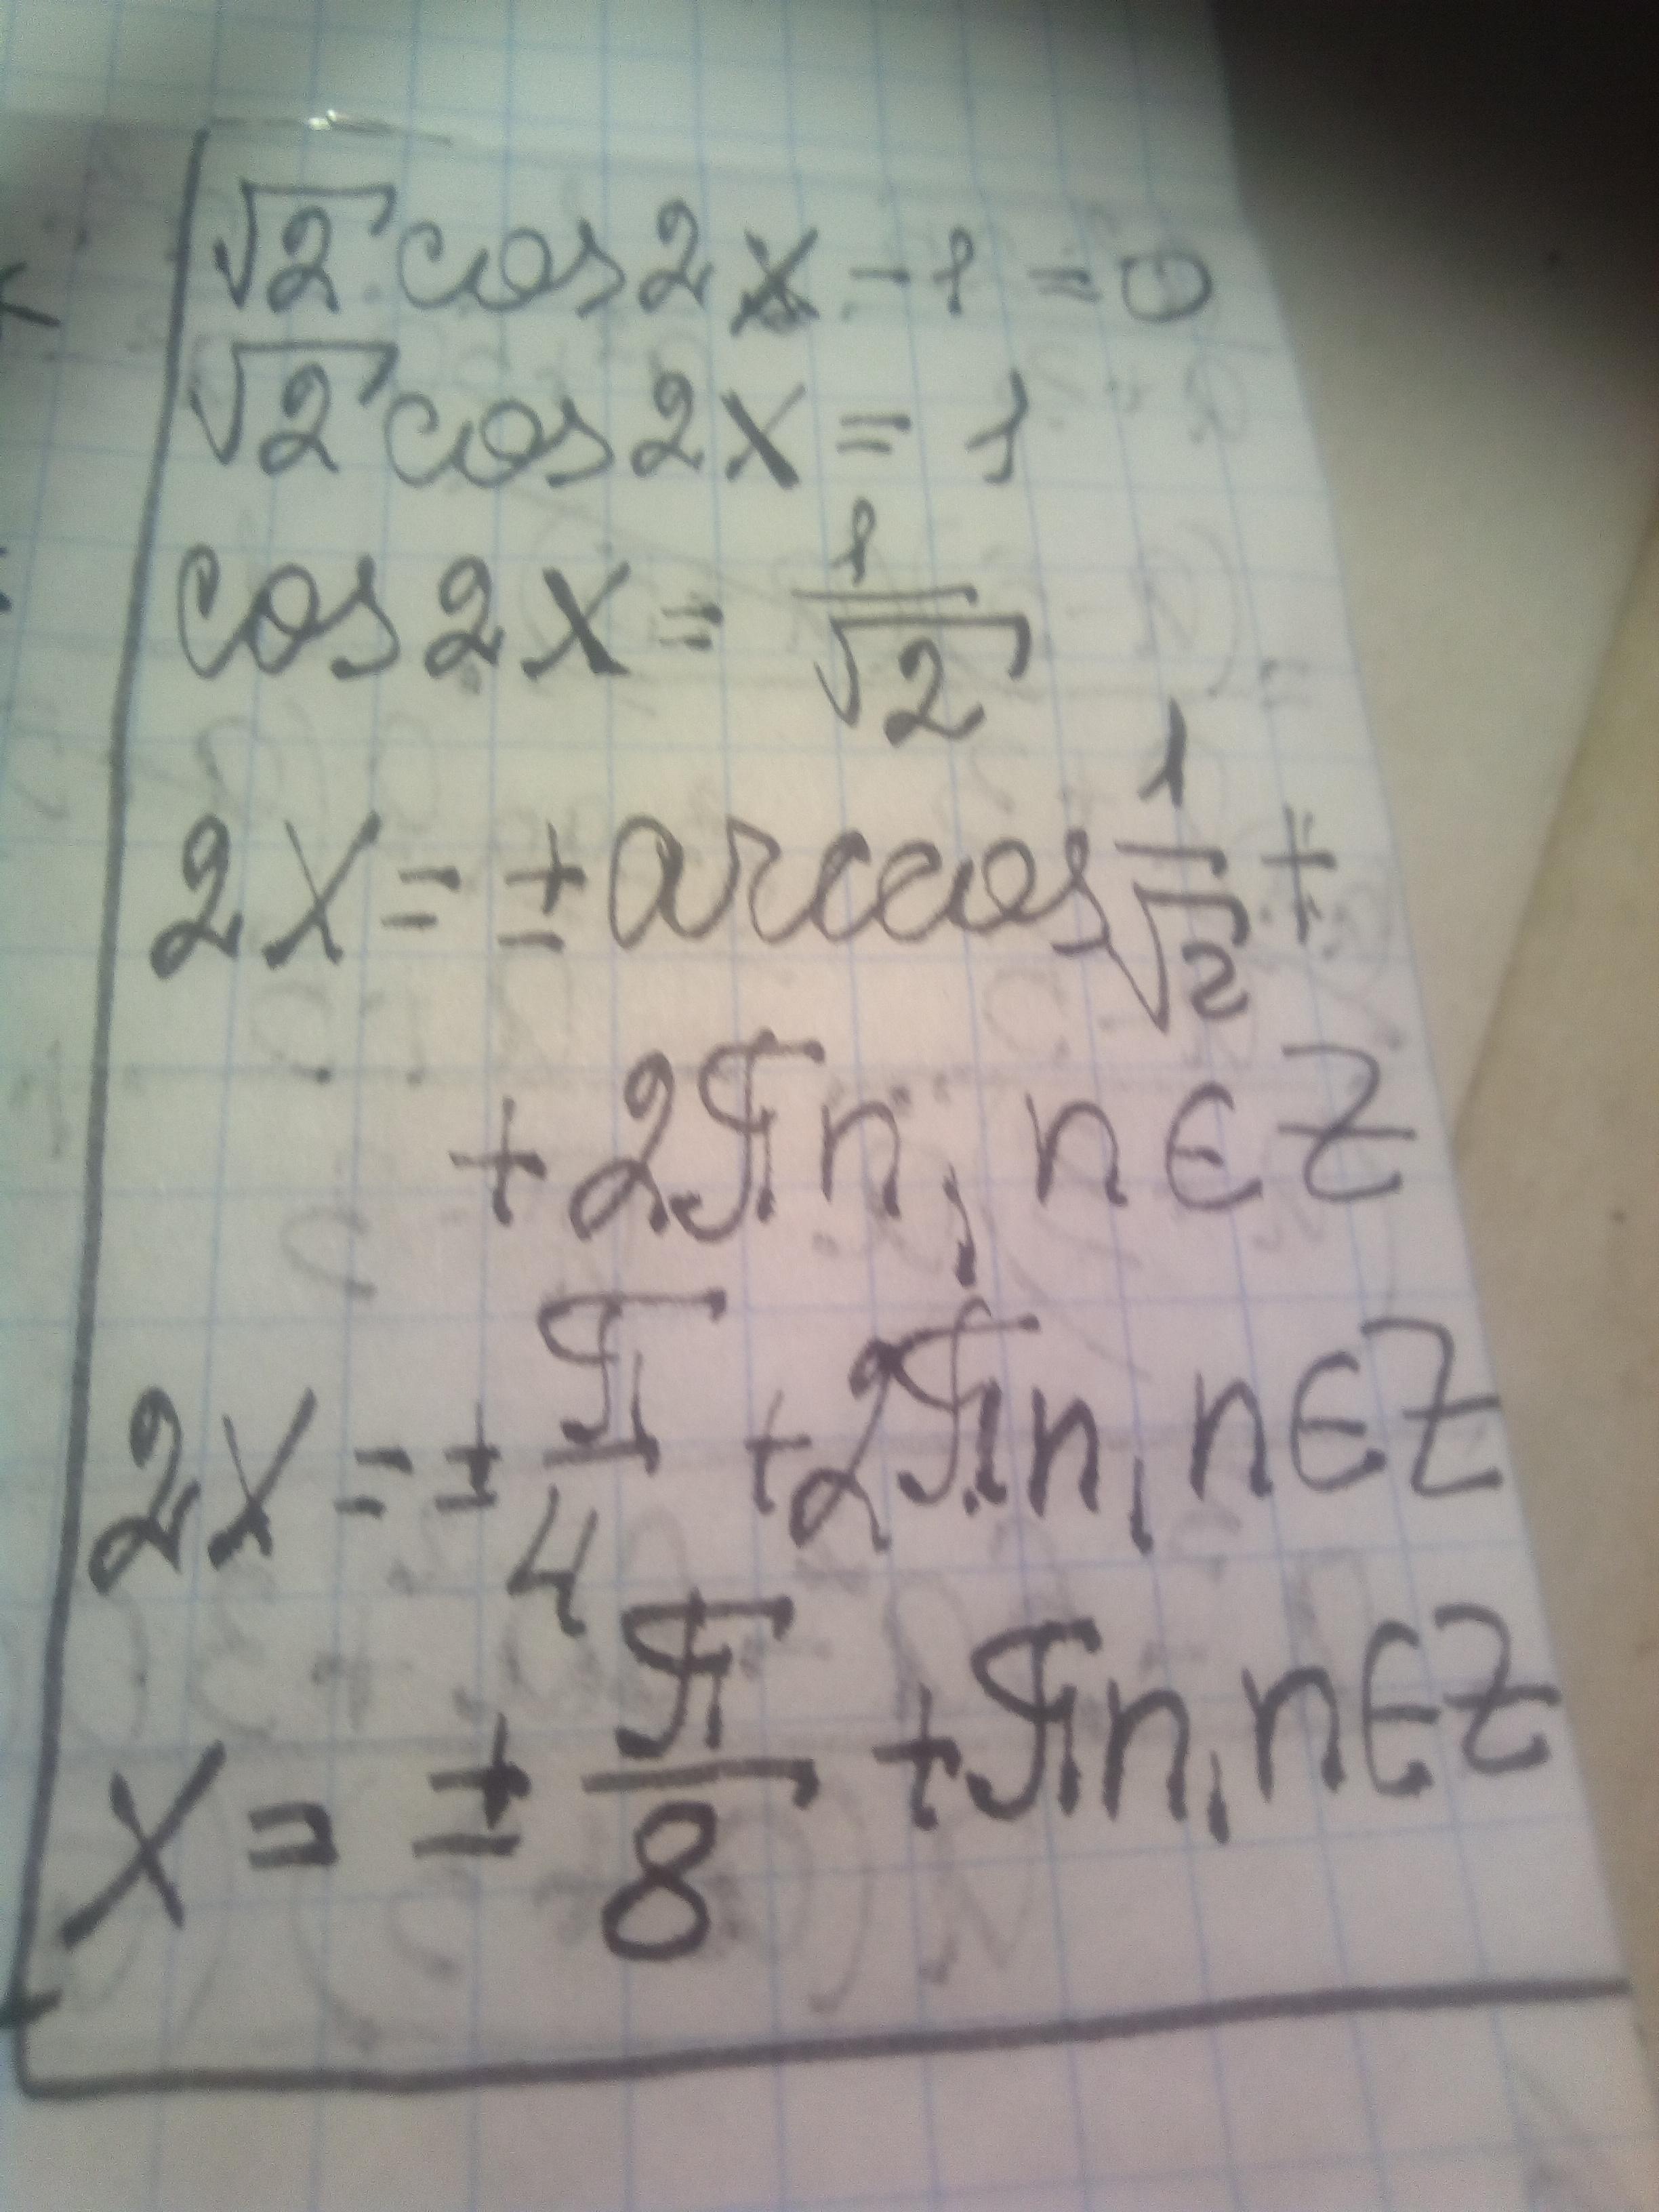 √2 cos2x - 1 = 0
√2 cos2x = 1
cos2x = 1/√2
2x = ± arccos 1/√2 +
+ 2πn, n∈Z
2x = ± π/4 + 2πn, n∈Z
x = ± π/8 + πn, n∈Z